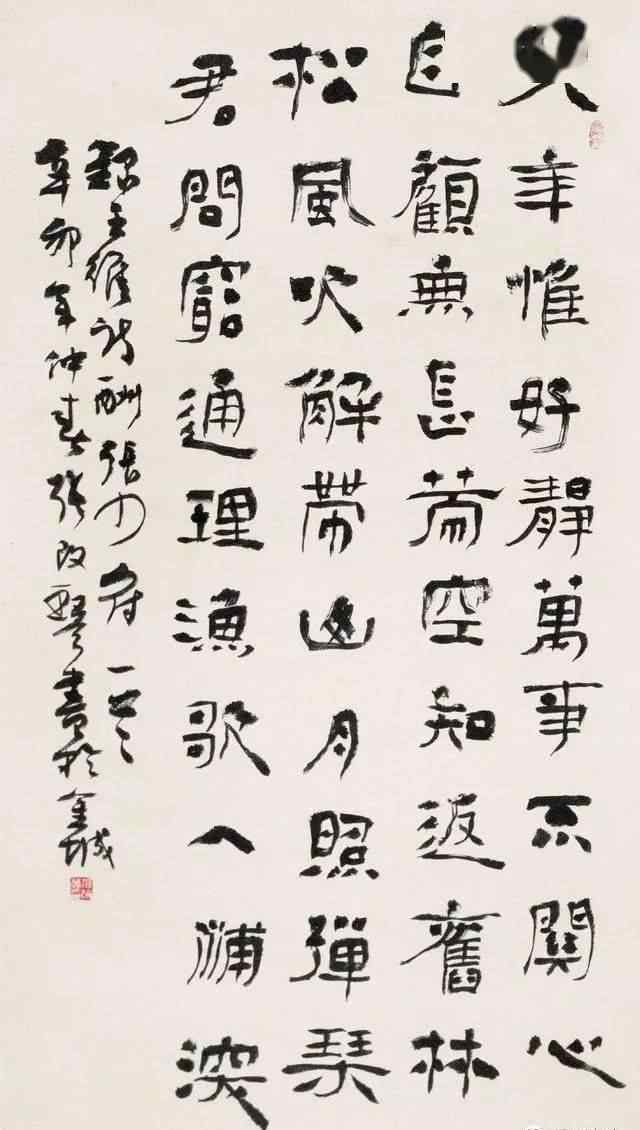 年惟好靜萬事不關心
自顧無長策空知返舊林
松風吹解帶山月照彈琴
君問窮通理漁歌入浦深
錄王維詩酬張少府一首
辛卯年仲春張改琴書於金城